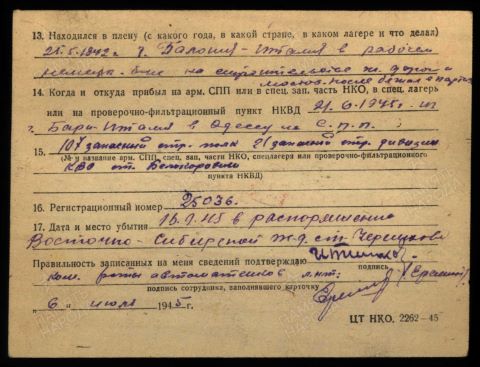 13. Находился в плену (с какого года, в какой стране, в каком лагере и что делал)
21.5.1942 г. г. Балония-Италия в рабочем
на строительстве ж. дорог и
мостов. после бежал в
14. Когда и откуда прибыл на арм. СПП или в спец. зап. часть НКО, в спец. лагерь
или на проверочно-фильтрационный пункт НКВД 21.6.1945 г. из
г. Бари-Италия в Одессу на С.П.П.
15. 107 запасный стр. полк 21 запасной стр. дивизии
(№ и название арм. СПП, спец. зап. части НКО, спецлагеря или проверочно-фильтрационного
КВО ст.
пункта НКВД)
16. Регистрационный номер 25036.
17. Дата и место убытия 16.9.45 в распоряжение
Восточно-Сибирской ж.д. ст. Черемхово
Правильность записанных на меня сведений подтверждаю
подпись
ком. роты автоматчиков л-нт:
подпись сотрудника, заполнявшего карточку
„6" июля 1945 г.
ЦТ НКО. 2262-45